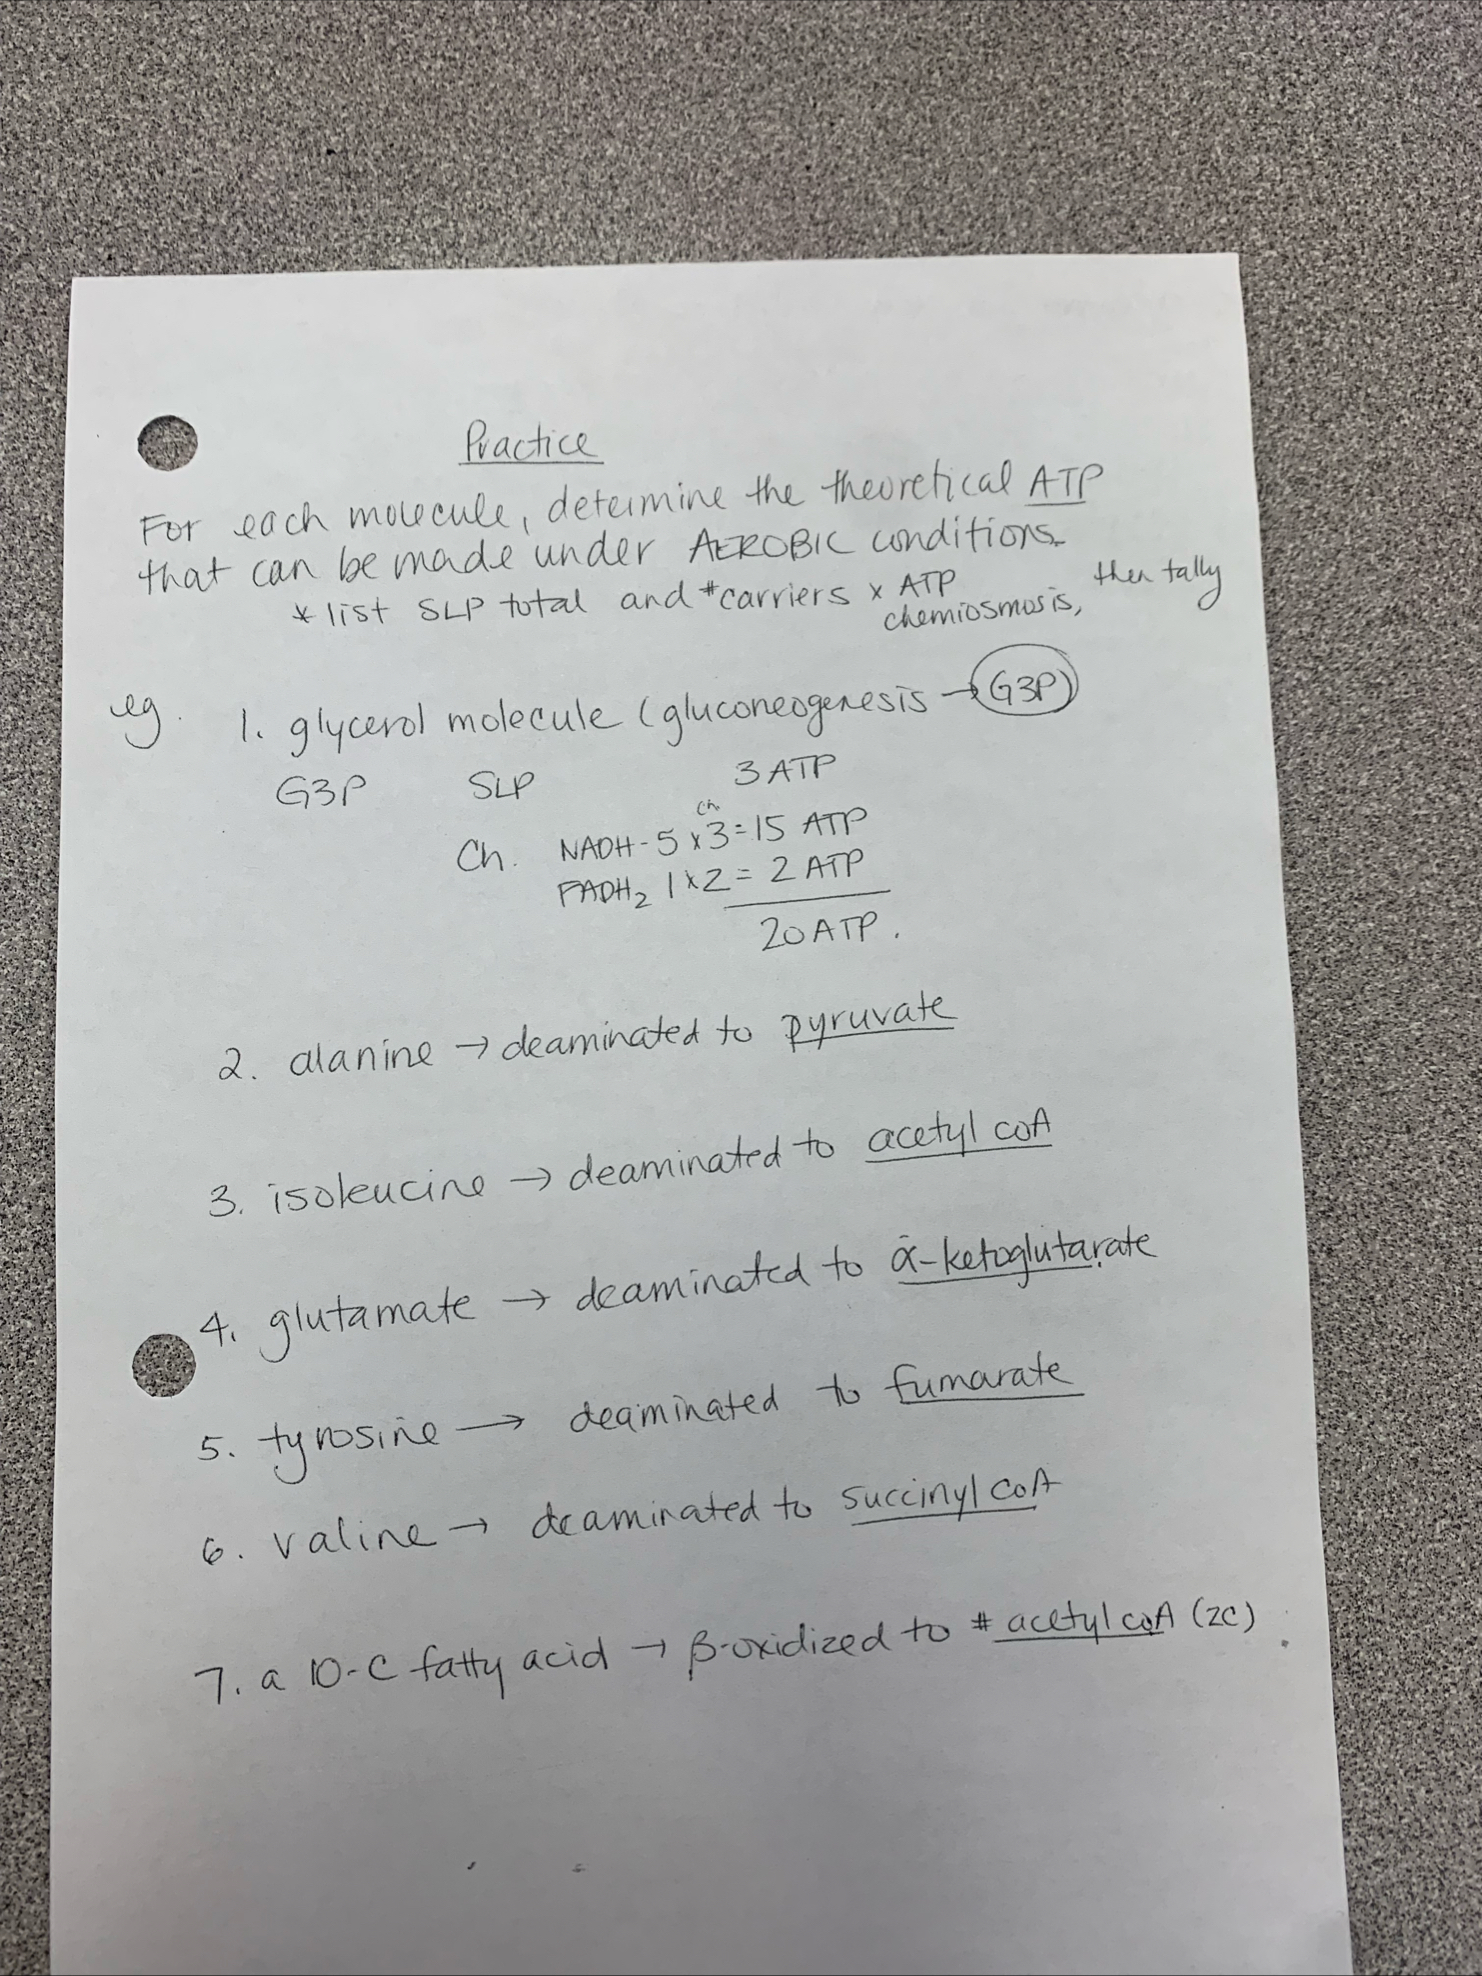 Practice
For each molecule, determine the theoretical ATP
that can be made under AEROBIC conditions.
* list SLP total and #carriers x ATP chemiosmosis, then tally
eg. 1. glycerol molecule (gluconeogenesis → G3P)
G3P SLP 3 ATP
Ch. NADH - 5 x 3 = 15 ATP
ch
FADH₂ 1 x 2 = 2 ATP
20 ATP.
2. alanine → deaminated to pyruvate
3. isoleucine → deaminated to acetyl coA
4. glutamate → deaminated to α-ketoglutarate
5. tyrosine → deaminated to fumarate
6. valine → deaminated to succinyl coA
7. a 10-C fatty acid → β-oxidized to # acetyl coA (2C)